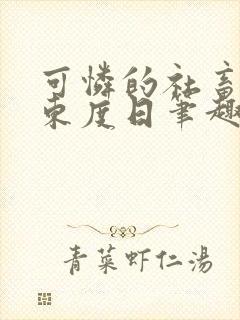 可憐的社畜
束度日筆趣
青菜虾仁湯